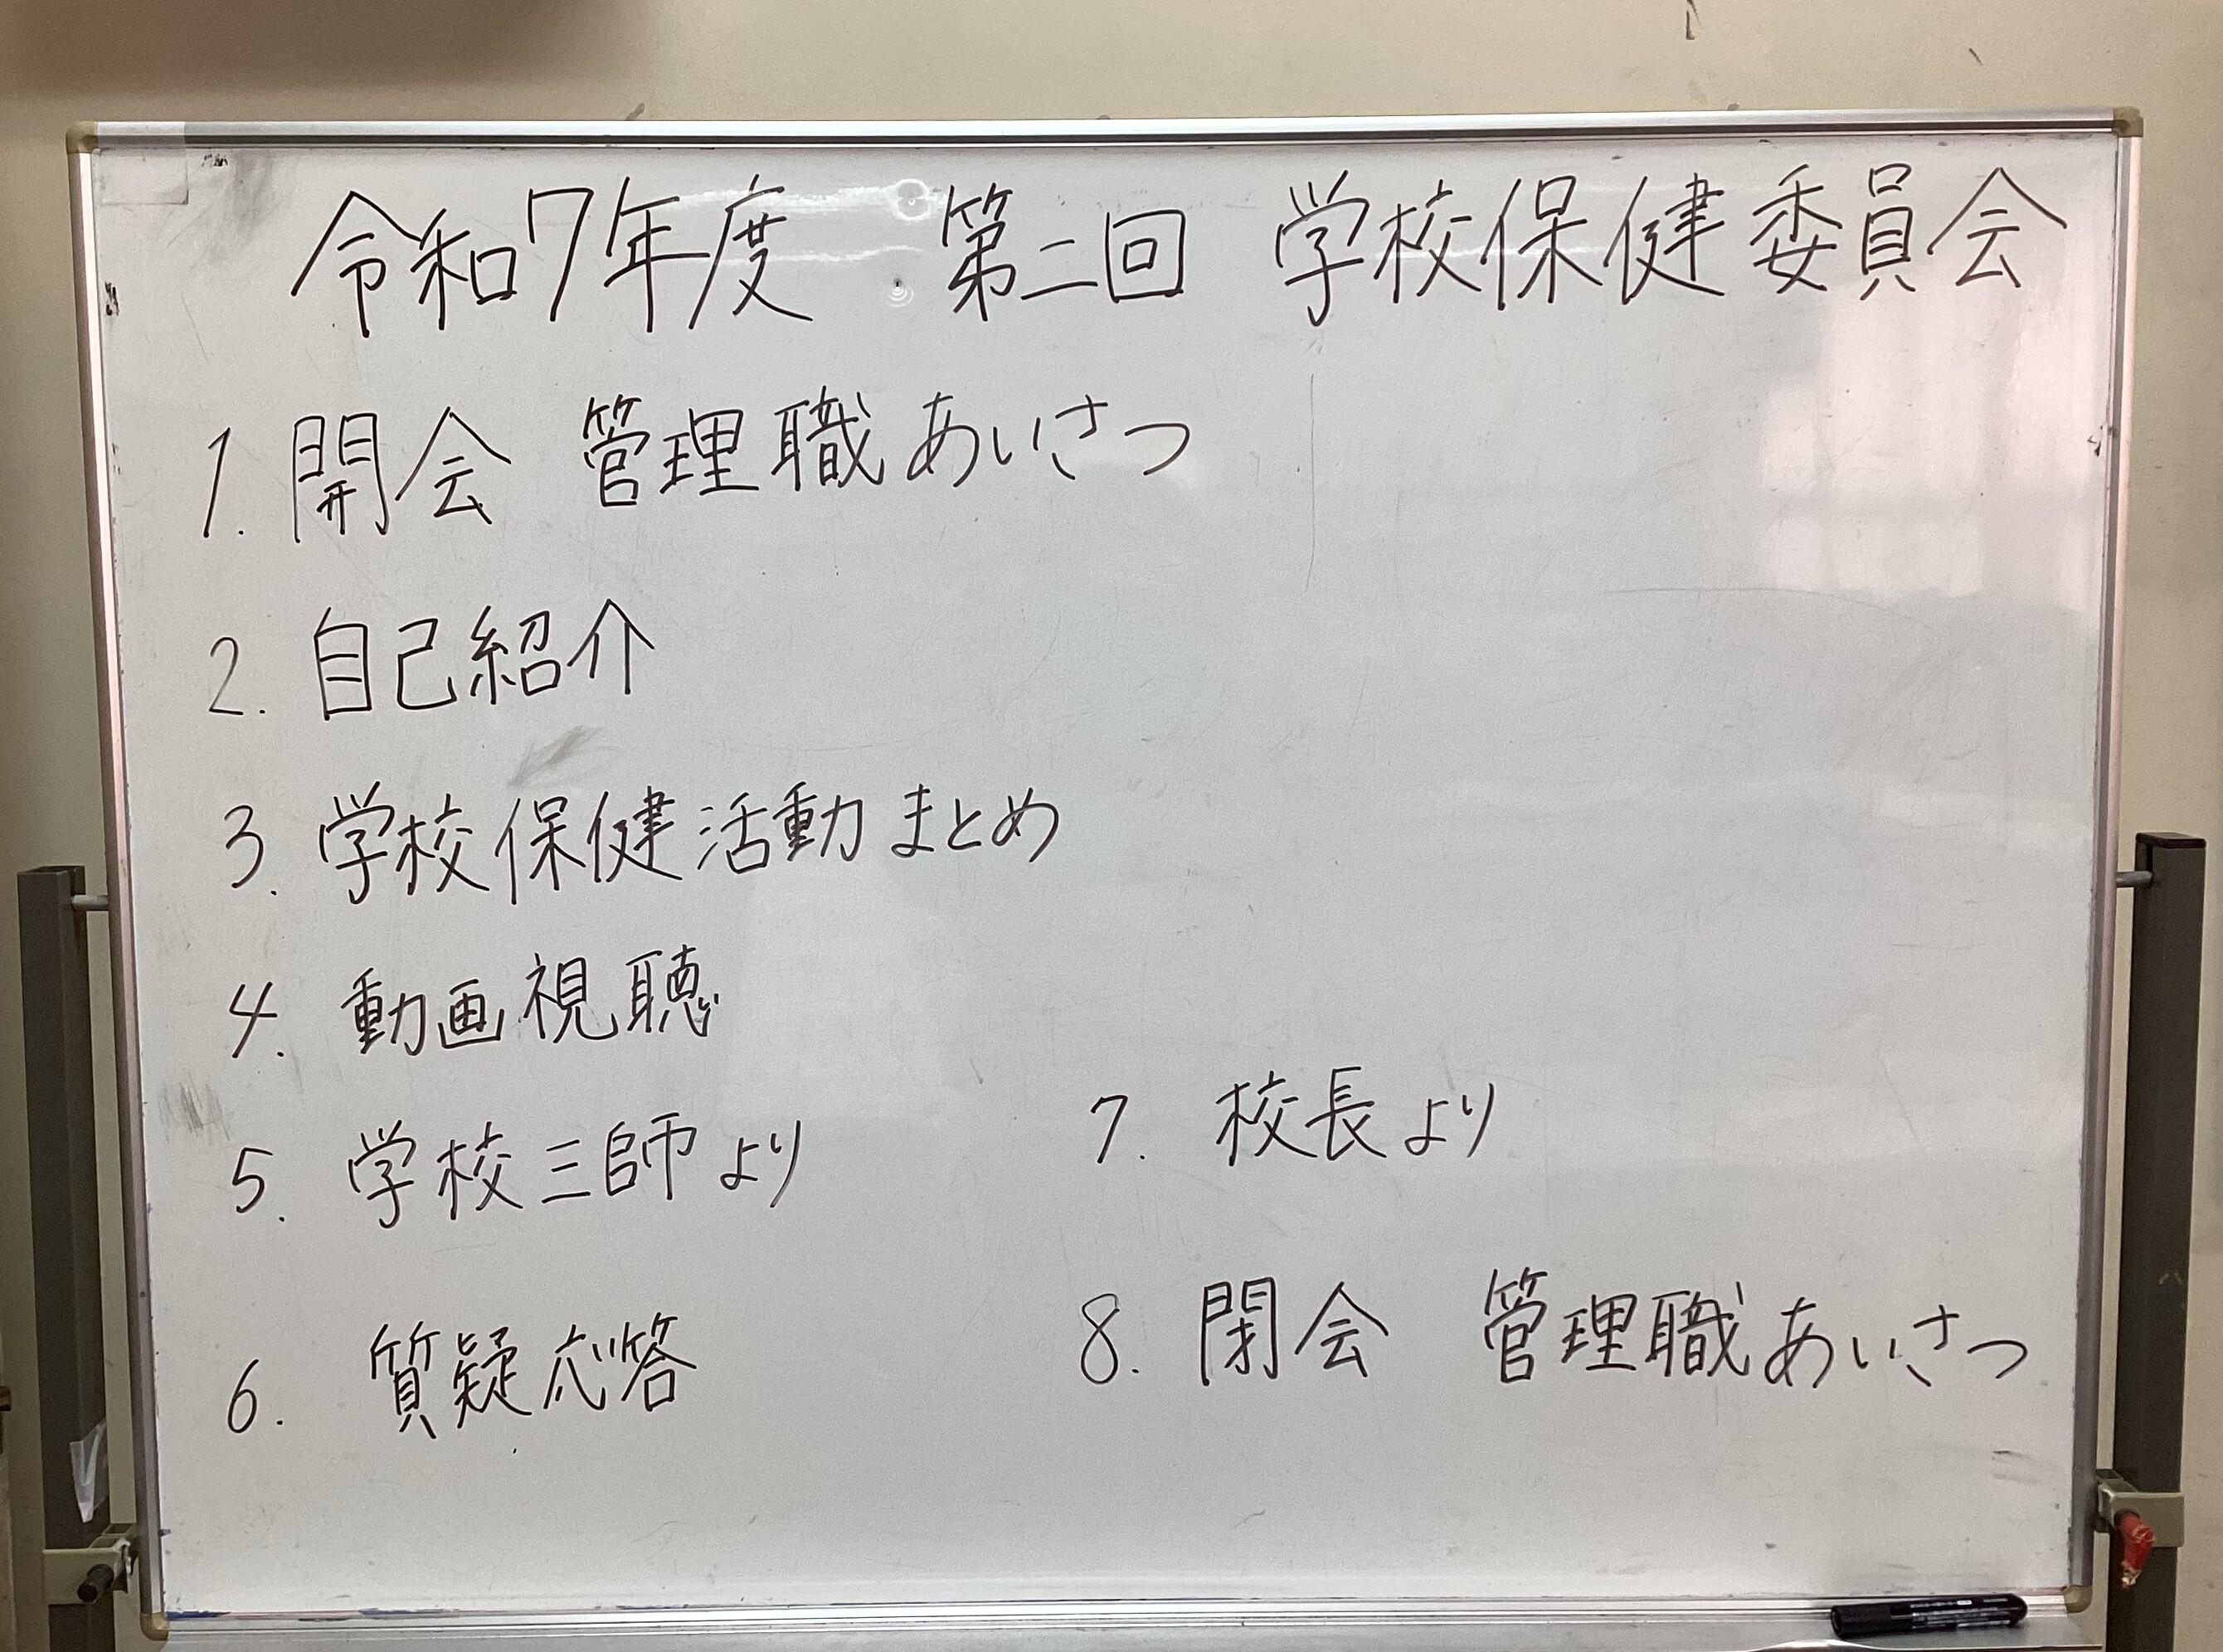 令和7年度 第二回 学校保健委員会
1. 開会 管理職あいさつ
2. 自己紹介
3. 学校保健活動まとめ
4. 動画視聴
5. 学校三師より
6. 質疑応答
7. 校長より
8. 閉会 管理職あいさつ